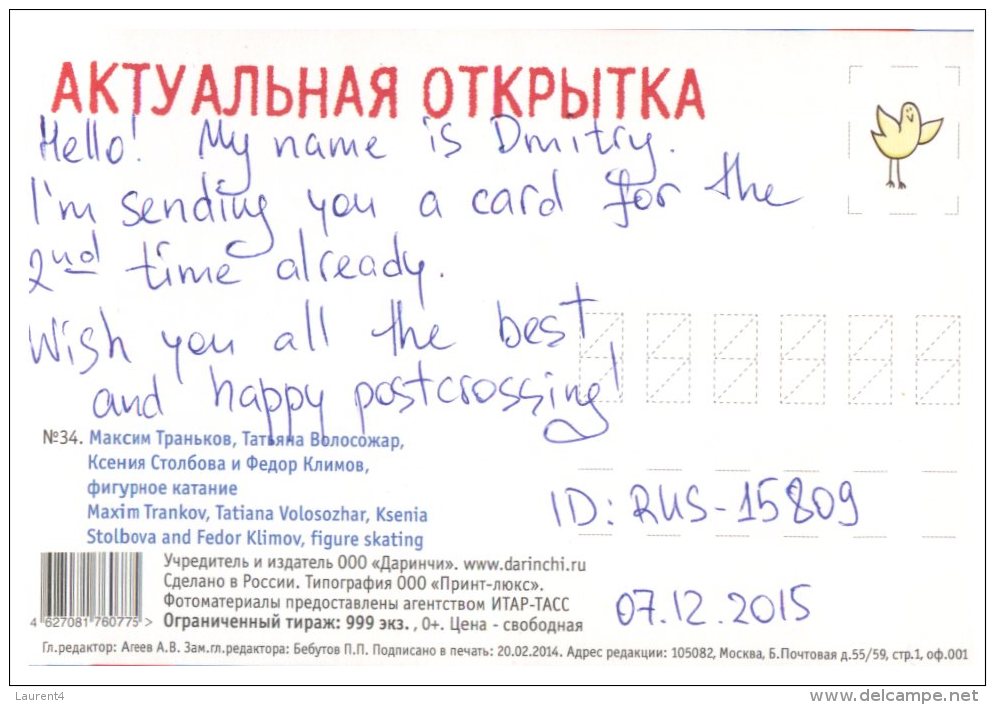 АКТУАЛЬНАЯ ОТКРЫТКА
Hello! My name is Dmitry.
I'm sending you a card for the
2nd time already.
Wish you all the best
and happy postcrossing!
№34. Максим Траньков, Татьяна Волосожар,
Ксения Столбова и Федор Климов,
фигурное катание
Maxim Trankov, Tatiana Volosozhar, Ksenia
Stolbova and Fedor Klimov, figure skating
ID: RUS-15809
Учредитель и издатель ООО «Даринчи». www.darinchi.ru
Сделано в России. Типография ООО «Принт-люкс».
Фотоматериалы предоставлены агентством ИТАР-ТАСС
Ограниченный тираж: 999 экз. , 0+. Цена - свободная
07.12.2015
4 627081 760775 >
Гл.редактор: Агеев А.В. Зам.гл.редактора: Бебутов П.П. Подписано в печать: 20.02.2014. Адрес редакции: 105082, Москва, Б.Почтовая д.55/59, стр.1, оф.001
Laurent4
www.delcampe.net